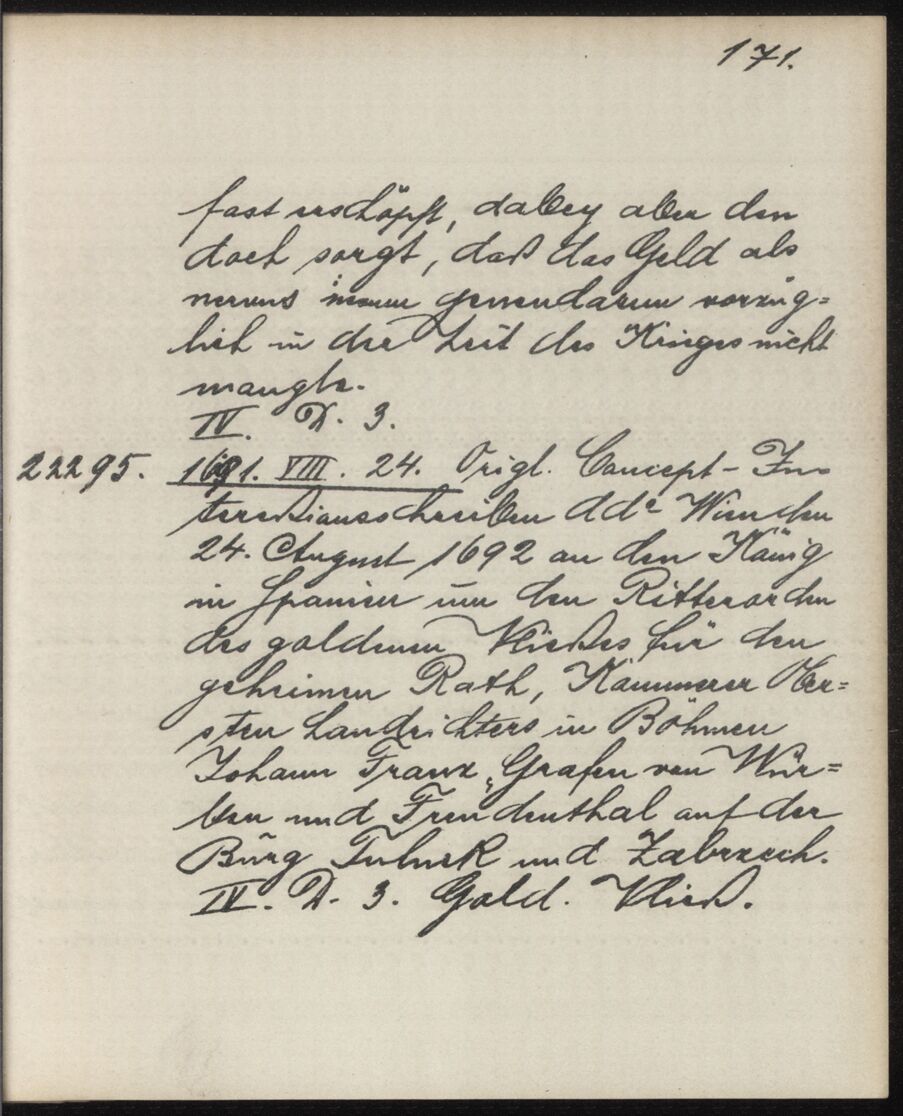 171.
fast erschöpft, dabey aber den
doch sorgt, daß das Geld als
nervus gerendarum vorzüg=
lich in der Zeit des Krieges nicht
mangle.
IV. D. 3.
22295. 1691. VIII. 24. Origl. Concept-In=
terceßionsschreiben ddo Wien den
24. August 1692 an den König
in Spanien um den Ritterorden
des goldenen Vließes für den
geheimen Rath, Kammerer Ober=
sten Landrichters in Böhmen
Johann Franz Grafen von Wür=
ben und Freudenthal auf der
Burg Fulnek und Zabrzech.
IV. D. 3. Gold. Vließ.